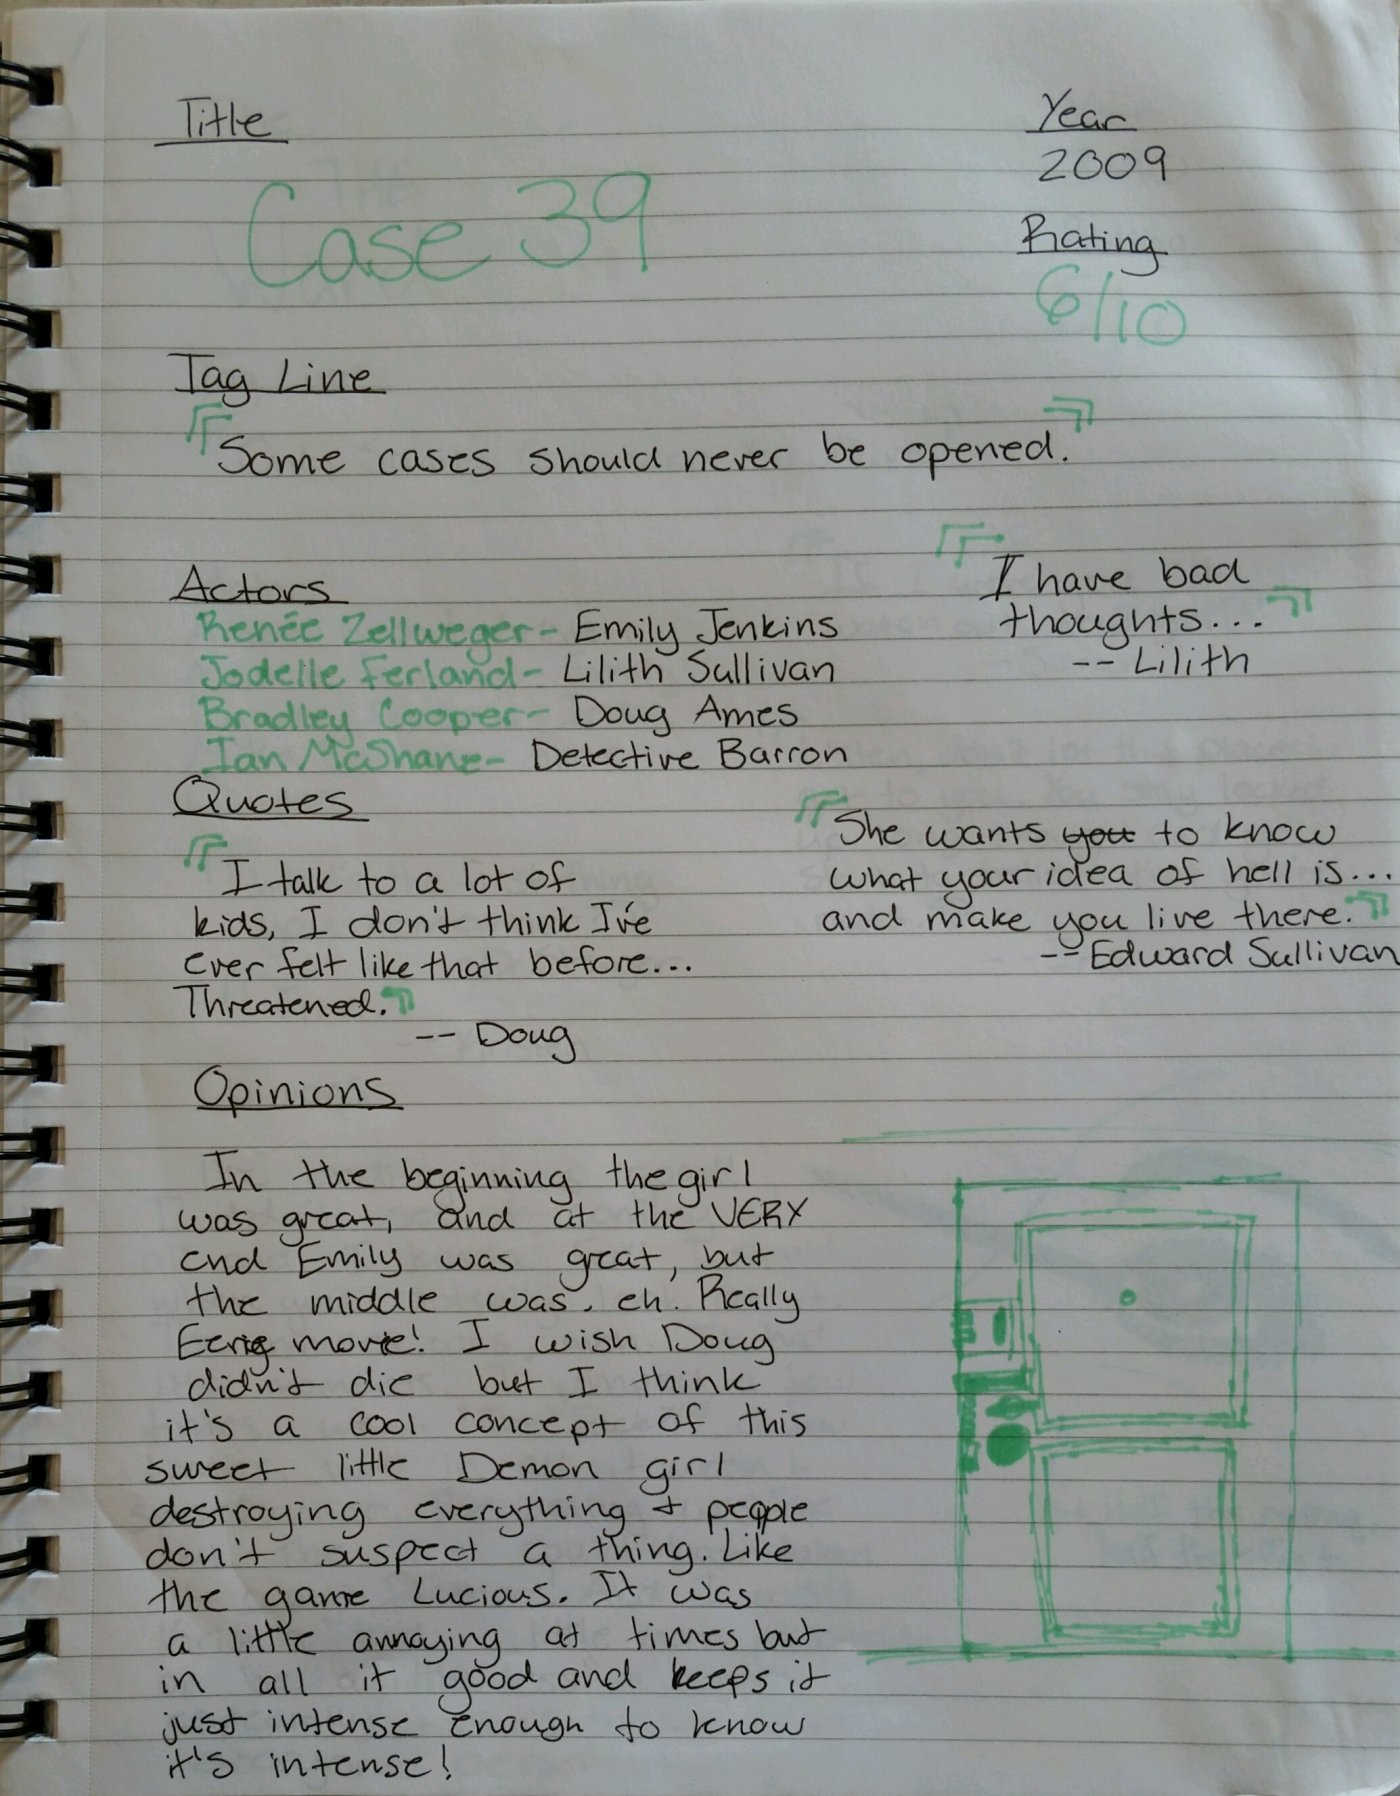 Title
Case 39
Year
2009
Rating
6/10
Tag Line
"Some cases should never be opened."
Actors
Renée Zellweger- Emily Jenkins
Jodelle Ferland- Lilith Sullivan
Bradley Cooper- Doug Ames
Ian McShane- Detective Barron
"I have bad
thoughts..."
-- Lilith
Quotes
"I talk to a lot of
kids, I don't think I've
ever felt like that before...
Threatened."
-- Doug
"She wants you to know
what your idea of hell is...
and make you live there."
-- Edward Sullivan
Opinions
In the beginning the girl
was great, and at the VERY
end Emily was great, but
the middle was. eh. Really
Eerie movie! I wish Doug
didn't die but I think
it's a cool concept of this
sweet little Demon girl
destroying everything + people
don't suspect a thing. Like
the game Lucious. It was
a little annoying at times but
in all it good and keeps it
just intense enough to know
it's intense!